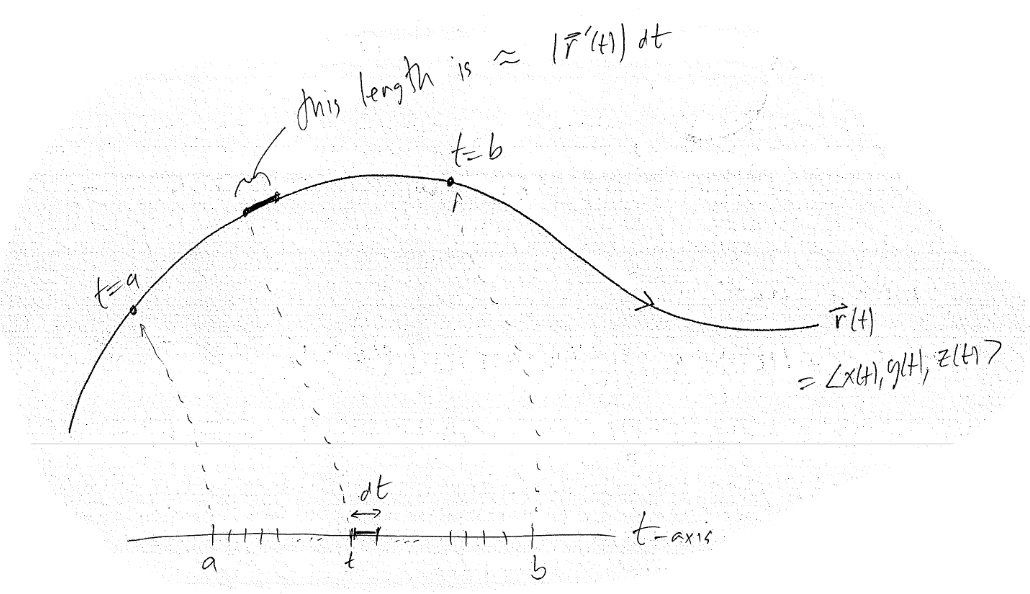 this length is ≈ |r⃗'(t)| dt
t=b
t=a
r⃗(t)
= <x(t), y(t), z(t)>
dt
t-axis
a
t
b